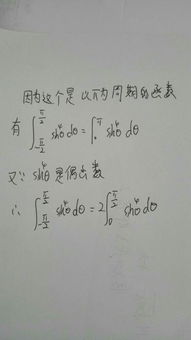 因为这个是以π为周期的函数
有 ∫_{-π/2}^{π/2} sin⁴θ dθ = ∫_0^π sin⁴θ dθ
又∵ sin⁴θ 是偶函数
∴ ∫_{-π/2}^{π/2} sin⁴θ dθ = 2∫_0^{π/2} sin⁴θ dθ